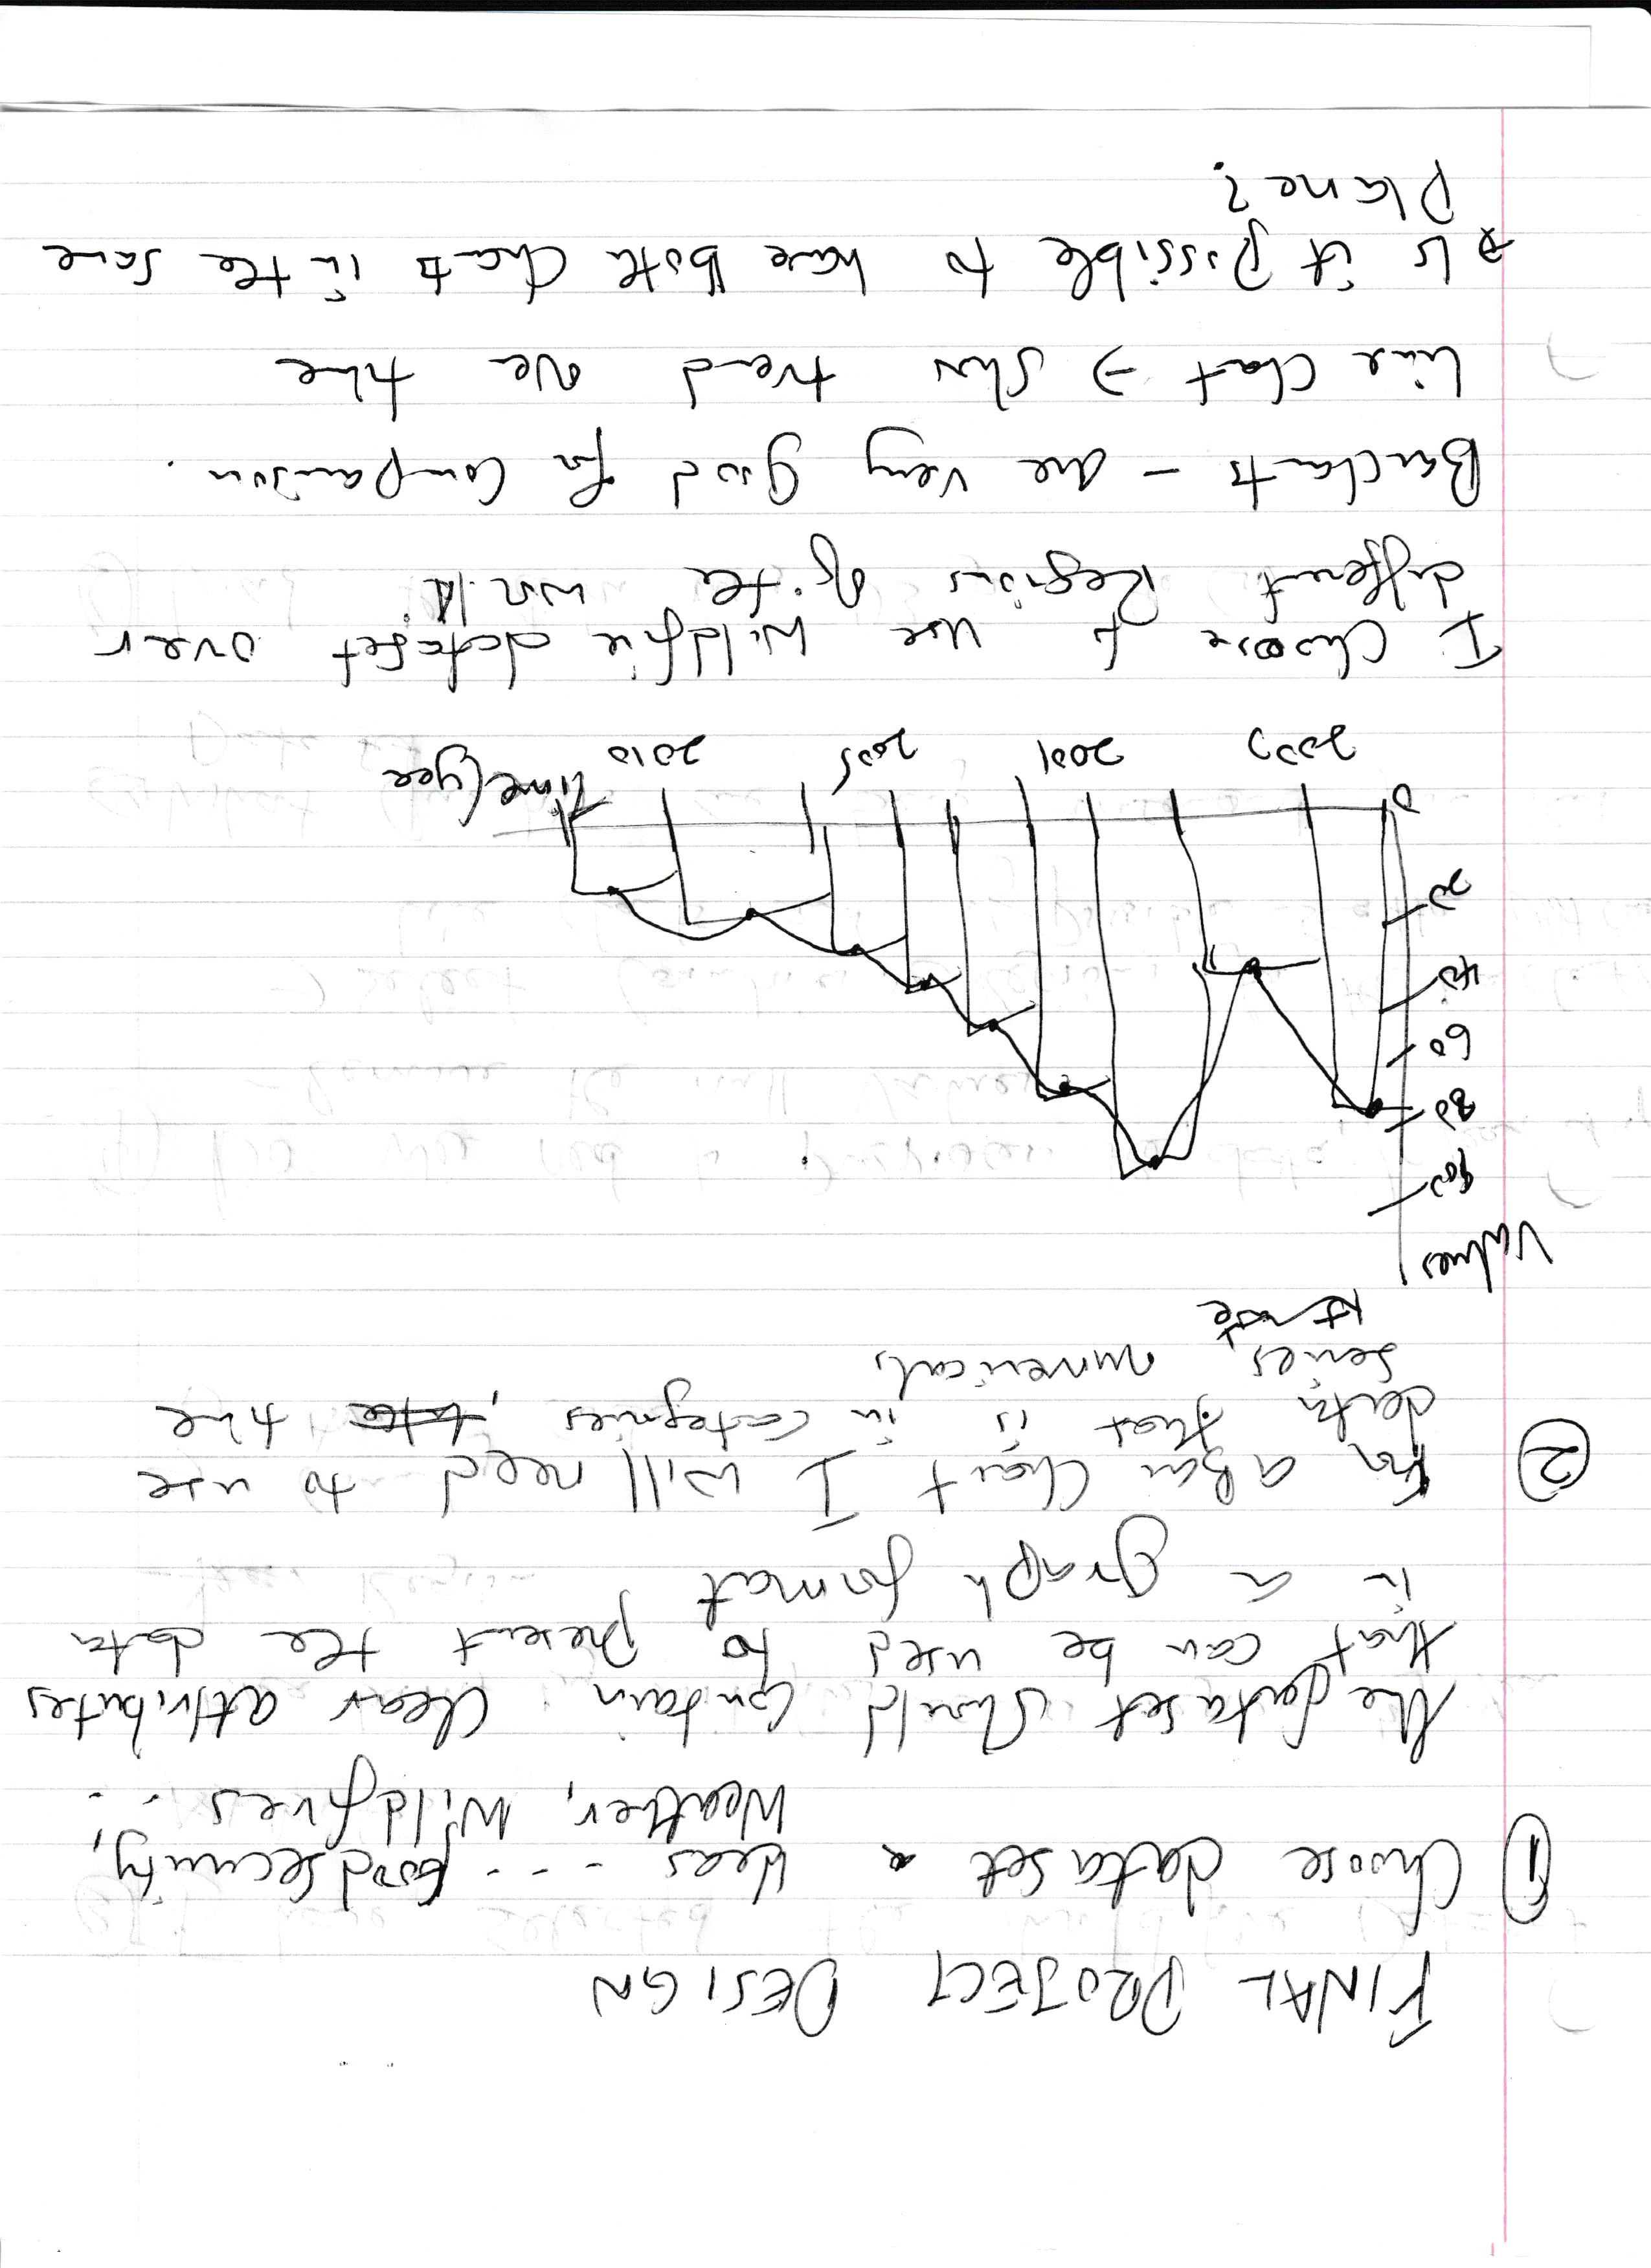 FINAL PROJECT DESIGN
① Choose dataset. Ideas --- Food Security,
Weather, Wildfires ...
The dataset should contain clear attributes
that can be used to present the data
in a graph format
② For a Bar Chart I will need to use
data that is in categories, time
series, numericals
Values
80
60
40
20
0
2001
2005
2010
Time/yea
I choose to use wildfire dataset over
different Regions of the world
Barcharts - are very good for comparison.
line chart → show trend over time
→ Is it possible to have both charts in the same
Plane?